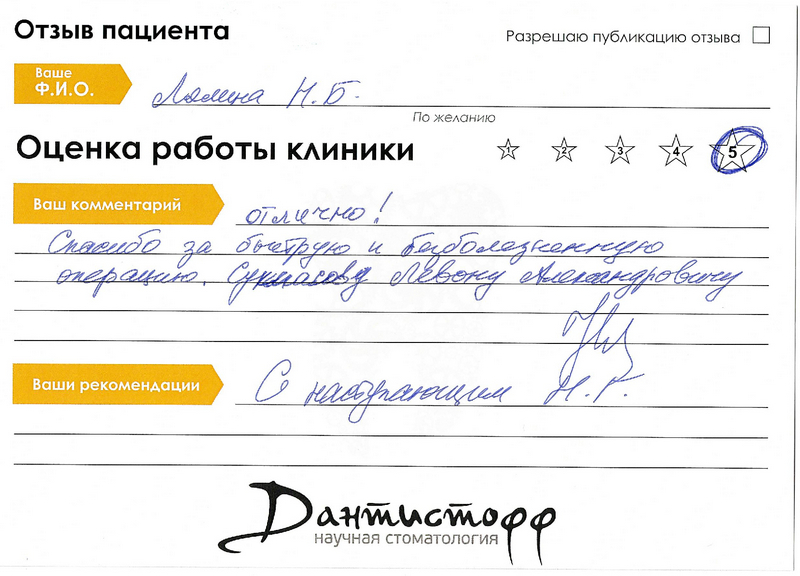 Отзыв пациента
Разрешаю публикацию отзыва
Ваше
Ф.И.О.
Лялина Н.Б.
По желанию
Оценка работы клиники
1 2 3 4 5
Ваш комментарий
отлично!
Спасибо за быструю и безболезненную
операцию. Левону Александровичу
Ваши рекомендации
С наступающим Н.Г.
Дантистофф
научная стоматология